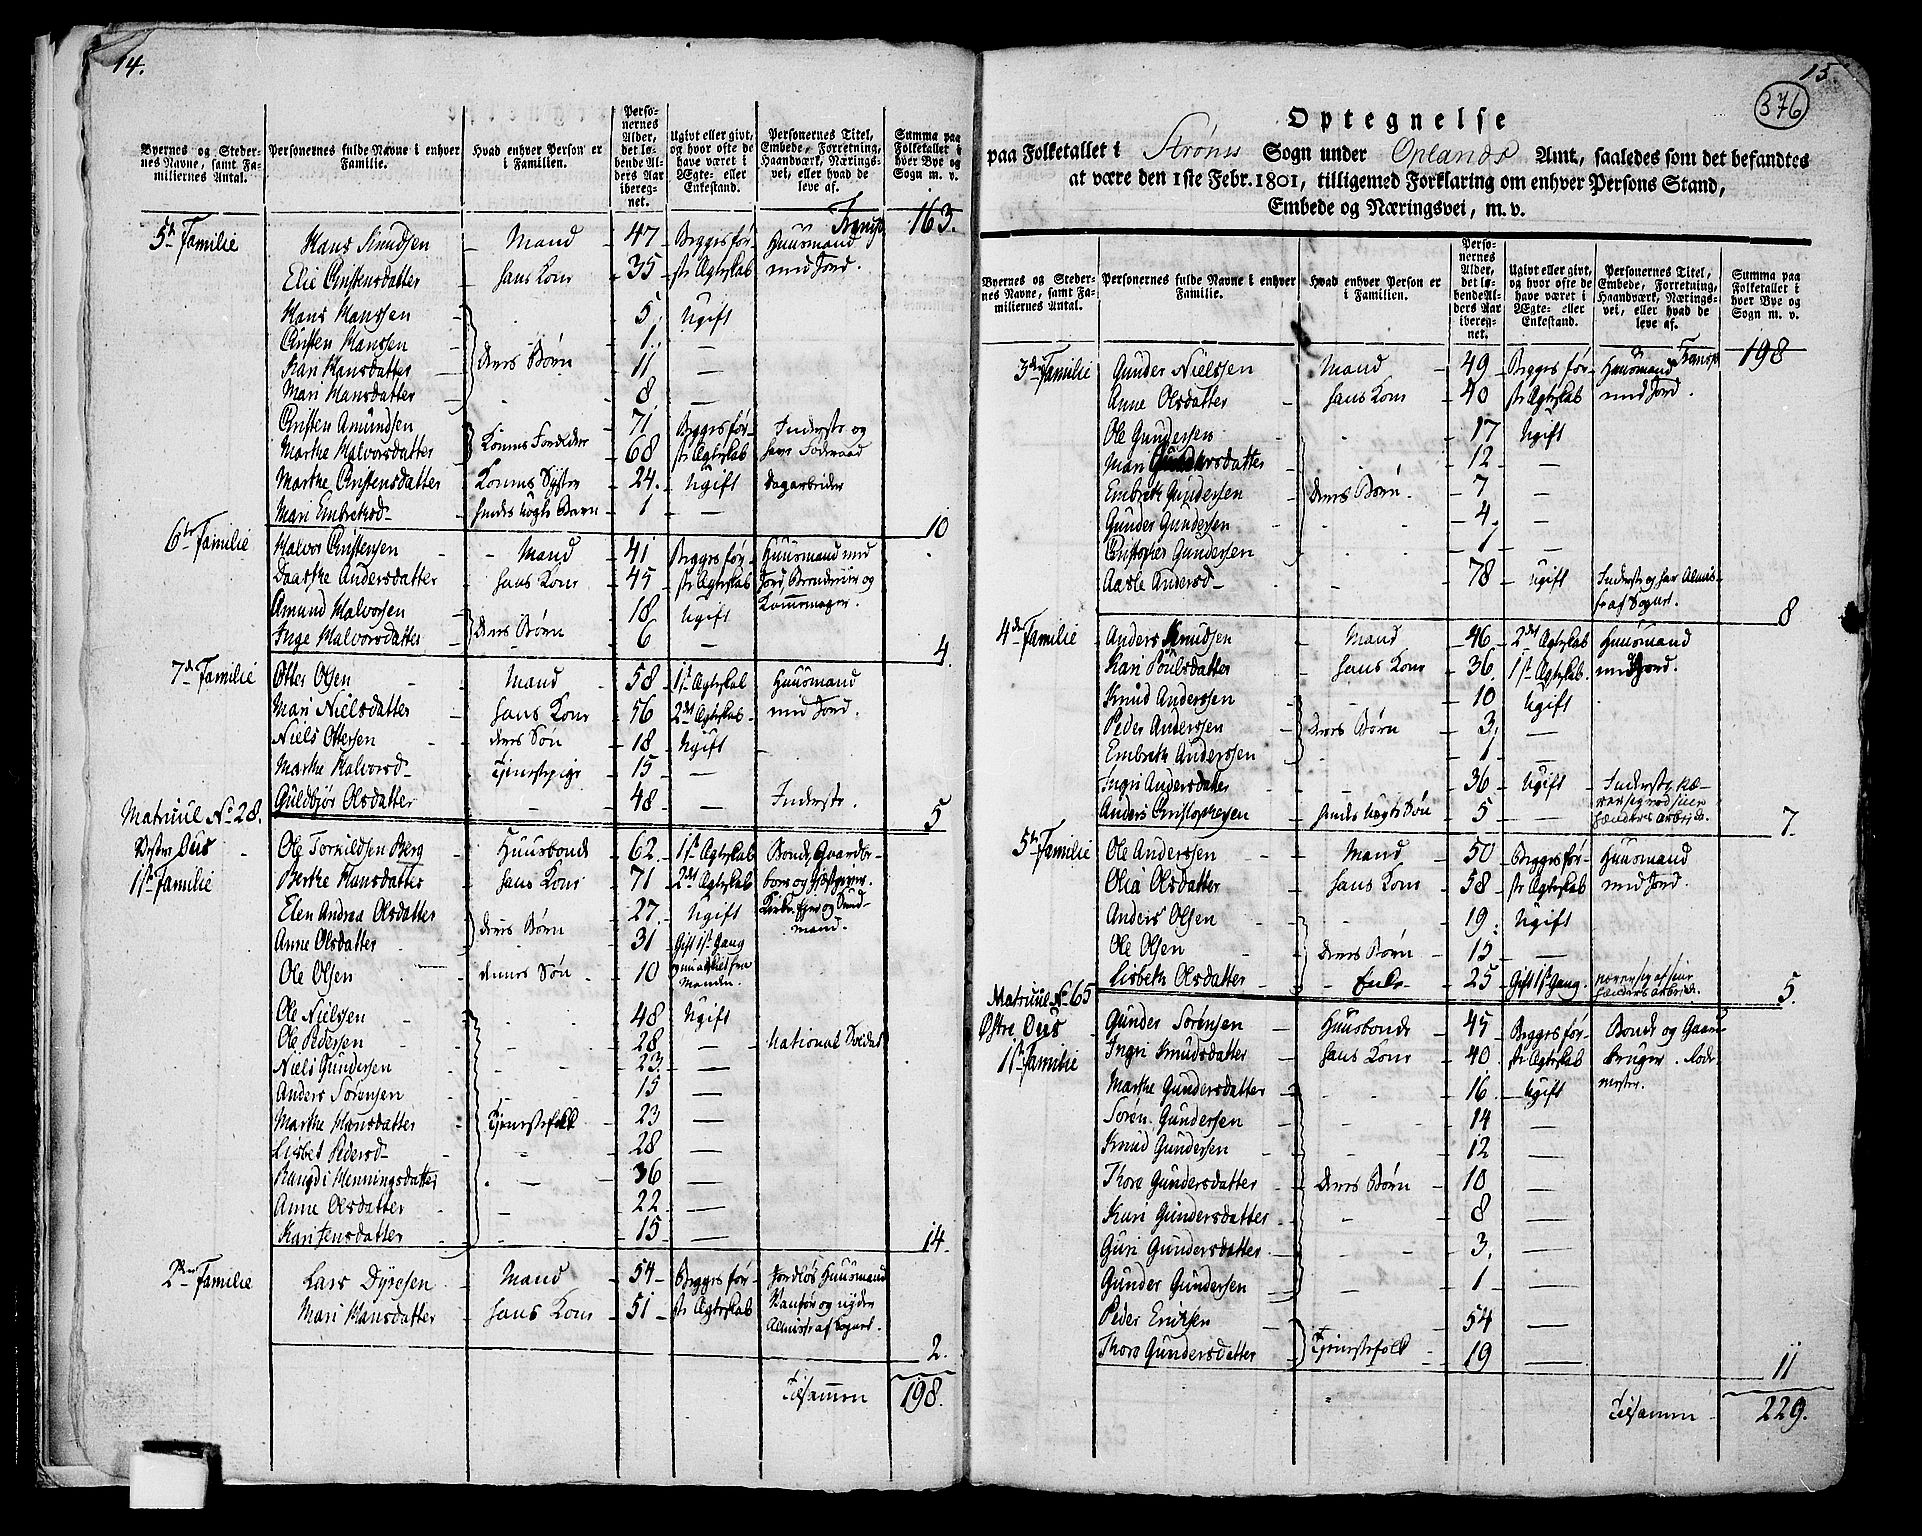 14.
Byernes og Steder-
nes Navne, samt Fa-
miliernes Antal.
Personernes fulde Navne i enhver
Familie.
Hvad enhver Person er
i Familien.
Perso-
nernes
Alder,
det lø-
bende Al-
ders Aar
ibereg-
net.
Ugivt eller givt,
og hvor ofte de
have været i
Ægte- eller
Enkestand.
Personernes Titel,
Embede, Forretning,
Haandværk, Nærings-
vei, eller hvad de
leve af.
Summa paa
Folketallet i
hver Bye og
Sogn m. v.
Transp. 163.
5te Familie Hans Knudsen Mand 47 Begge i før- Huusmand
Elie Christensdatter hans Kone 35 ste Ægteskab med Jord.
Hans Hanssen 5 Ugift
Christen Hanssen 1 —
Kari Hansdatter deres Børn 11 —
Mari Hansdatter 8 —
Christen Amundsen 71 Begge i før- Inderste og
Marthe Halvorsdatter Konens Forældre 68 ste Ægteskab har Føderaad
Marthe Christensdatter Konens Syster 24 Ugift Dagarbeider
Mari Embretsd. hendes uægte Barn 1 —
10
6te Familie Halvor Christensen Mand 41 Begge i før- Huusmand med
Daarthe Andersdatter hans Kone 45 ste Ægteskab Jord
Amund Halvorsen 18 Ugift
Inge Halvorsdatter deres Børn 6 —
4.
7de Familie Otter Olsen Mand 58 1ste Ægteskab Huusmand
Mari Nielsdatter hans Kone 56 2det Ægteskab med Jord.
Niels Ottersen deres Søn 18 Ugift
Marthe Halvorsd. Tjenestepige 15 —
Guldbjør Olsdatter 48 — Inderste.
5
Matruul No 28.
Vestre Ous Ole Torkildsen Berg Huusbonde 62 1ste Ægteskab Bonde, Gaardbe-
1ste Familie Berthe Hansdatter hans Kone 71 2det Ægteskab boer og Giestgiver.
Elen Andrea Olsdatter 27 Ugift Kirke Eyer og
Anne Olsdatter deres Børn 31 Gift 1ste Gang mand.
Ole Olsen dennes Søn 10 Manden.
Ole Nielssen 48 Ugift
Ole Pedersen 28 — National Soldat
Niels Gundersen 23 —
Anders Sørensen 15 —
Marthe Hansdatter Tjenestefolk 23 —
Lisbet Pedersd. 28 —
Rangdi Henningsdatter 36 —
Anne Olsdatter 22 —
Kari Jensdatter 15 —
14.
2den Familie Lars Dyresen Mand 54 Begge i før- Jordløs Huusmand
Mari Hansdatter hans Kone 51 ste Ægteskab Vanfør og nyder
Almisse af Sognet.
2.
Tilsammen 198.
15.
376
Optegnelse
paa Folketallet i Strøms Sogn under Oplands Amt, saaledes som det befandtes
at være den 1ste Febr. 1801, tilligemed Forklaring om enhver Persons Stand,
Embede og Næringsvei, m. v.
Byernes og Steder-
nes Navne, samt Fa-
miliernes Antal.
Personernes fulde Navne i enhver
Familie.
Hvad enhver Person er
i Familien.
Perso-
nernes
Alder,
det lø-
bende Al-
ders Aar
ibereg-
net.
Ugivt eller givt,
og hvor ofte de
have været i
Ægte- eller
Enkestand.
Personernes Titel,
Embede, Forretning,
Haandværk, Nærings-
vei, eller hvad de
leve af.
Summa paa
Folketallet i
hver Bye og
Sogn m. v.
Transp. 198
3die Familie Gunder Nielssen Mand 49 Begge i før- Huusmand
Anne Olsdatter hans Kone 40 ste Ægteskab med Jord.
Ole Gundersen 17 Ugift
Mari Gundersdatter 12 —
Embreth Gundersen deres Børn 7 —
Gunder Gundersen 4 —
Christopher Gundersen 1 —
Aasle Andersd. 78 Ugift Inderste og har Almis-
se af Sognet.
8
4de Familie Anders Knudsen Mand 46 2det Ægteskab Huusmand
Kari Poulsdatter hans Kone 36 1ste Ægteskab med Jord.
Knud Anderssen 10 Ugift
Peder Anderssen deres Børn 3 —
Embreth Anderssen 1 —
Ingri Andersdatter 36 Ugift Inderste, næ-
Anders Christophersen hendes uægte Søn 5 — rer sig ved sine
Hænders Arbeide.
7.
5te Familie Ole Anderssen Mand 50 Begge i før- Huusmand
Olia Olsdatter hans Kone 58 ste Ægteskab med Jord.
Anders Olsen 19 Ugift
Ole Olsen deres Børn 15 —
Lisbeth Olsdatter Enke 25 Gift 1ste Gang. nærer sig af sine
Hænders Arbeide.
5.
Matruul No 65
Østre Ous Gunder Sørensen Huusbonde 45 Begge i før- Bonde og Gaard-
1ste Familie Ingri Knudsdatter hans Kone 40 ste Ægteskab bruger. Lods-
Marthe Gundersdatter 16 Ugift mester.
Søren Gundersen 14 —
Knud Gundersen 12 —
Thore Gundersdatter deres Børn 10 —
Kari Gundersdatter 8 —
Guri Gundersdatter 3 —
Gunder Gundersen 1 —
Peder Ericksen 54 —
Thore Gundersdatter Tjenestefolk 19 —
11
Tilsammen 229.